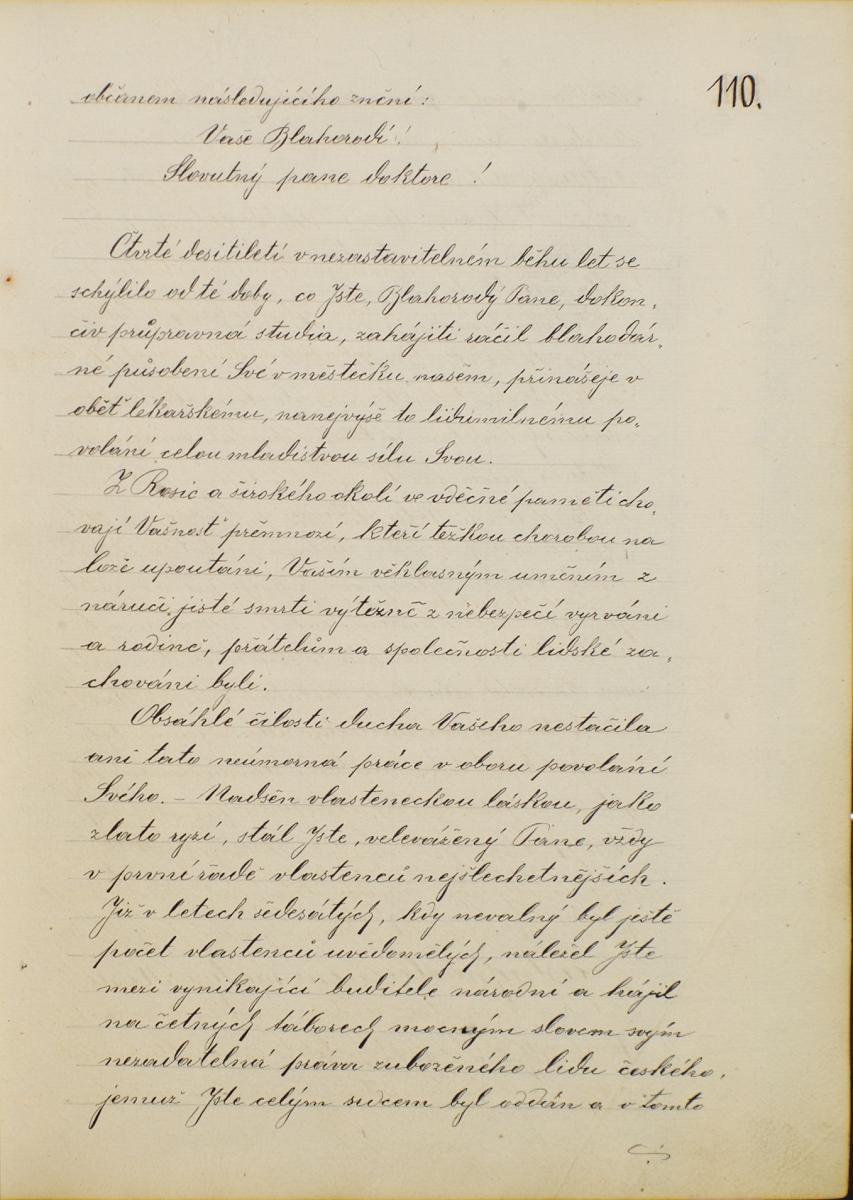 110.
občanem následujícího znění:
Vaše Blahorodí!
Slovutný pane doktore!
Čtvrté desitiletí v nezastavitelném běhu let se
schýlilo od té doby, co Jste, Blahorodý Pane, dokon„
čiv průpravná studia, zahájiti ráčil blahodár„
né působení Své v městečku našem, přinášeje v
oběť lékařskému, nanejvýše to lidumilnému po„
volání celou mladistvou sílu Svou.
Z Rosic a širokého okolí ve vděčné paměti cho„
vají Vašnosť přemnozí, kteří těžkou chorobou na
lože upoutáni, Vaším věhlasným uměním z
náručí jisté smrti výtěžně z nebezpečí vyrváni
a rodině, přátelům a společnosti lidské za„
chováni byli.
Obsáhlé čilosti ducha Vašeho nestačila
ani tato neúmorná práce v oboru povolání
Svého. – Nadšen vlasteneckou láskou, jako
zlato ryzí, stál Jste, velevážený Pane, vždy
v první řadě vlastenců nejšlechetnějších.
Již v letech šedesátých, kdy nevalný byl jistě
počet vlastenců uvědomělých, náležel Jste
mezi vynikající buditele národní a hájil
na četných táborech mocným slovem svým
nezadatelná práva zuboženého lidu českého,
jemuž Jste celým srdcem byl oddán a v tomto